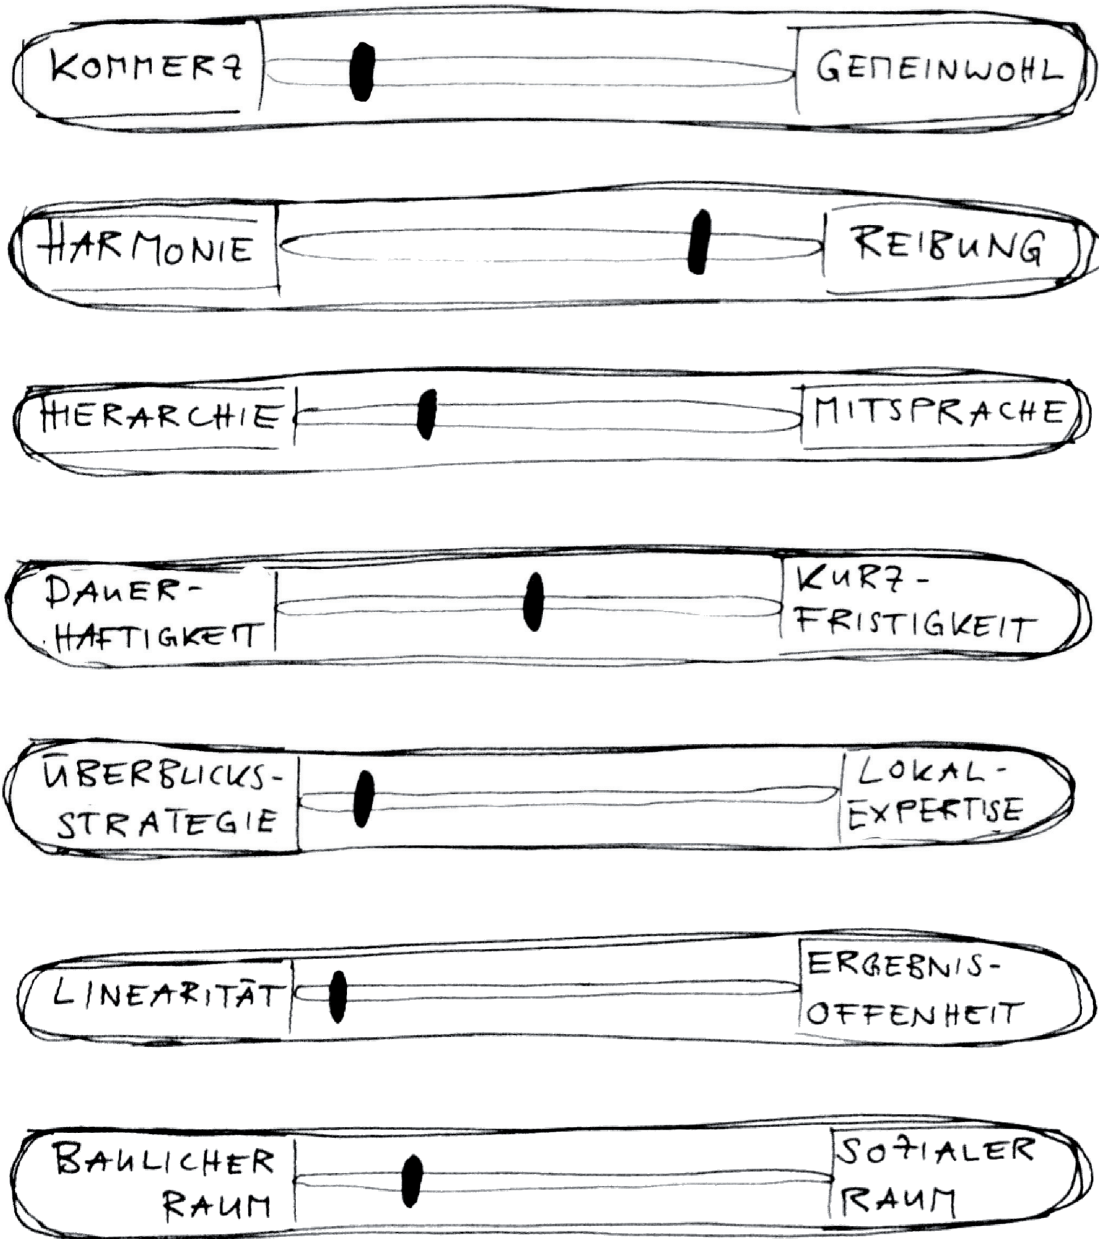 KOMMERZ
GEMEINWOHL
HARMONIE
REIBUNG
HIERARCHIE
MITSPRACHE
DAUER-
HAFTIGKEIT
KURZ-
FRISTIGKEIT
ÜBERBLICKS-
STRATEGIE
LOKAL-
EXPERTISE
LINEARITÄT
ERGEBNIS-
OFFENHEIT
BAULICHER
RAUM
SOZIALER
RAUM